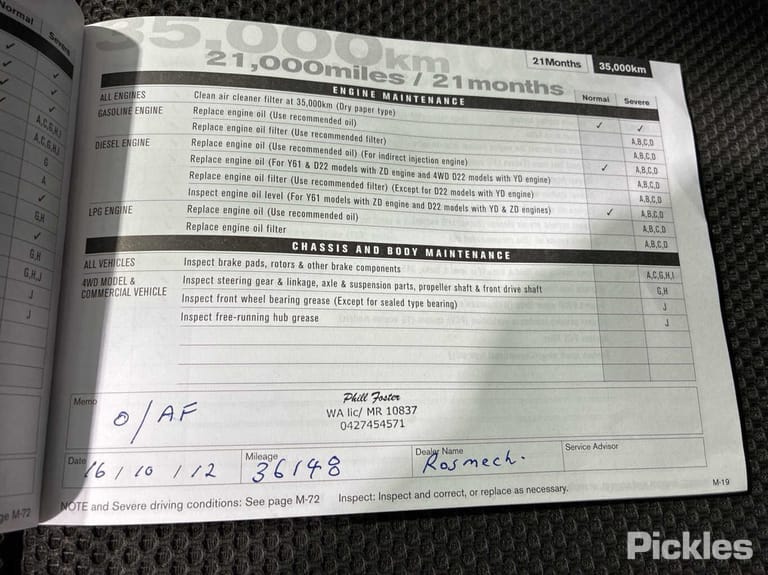 Normal
Severe
✓
✓
✓
✓
✓
A,C,G,H,I
A,C,G,H,I
G
A
✓
G,H
✓
G,H
G,H,J
J
J
ge M-72
35,000km
21,000miles / 21months
21Months 35,000km
ENGINE MAINTENANCE Normal Severe
ALL ENGINES Clean air cleaner filter at 35,000km (Dry paper type) ✓ ✓
GASOLINE ENGINE Replace engine oil (Use recommended oil) A,B,C,D
Replace engine oil filter (Use recommended filter) A,B,C,D
DIESEL ENGINE Replace engine oil (Use recommended oil) (For indirect injection engine) ✓ A,B,C,D
Replace engine oil (For Y61 & D22 models with ZD engine and 4WD D22 models with YD engine) A,B,C,D
Replace engine oil filter (Use recommended filter) (Except for D22 models with YD engine) A,B,C,D
Inspect engine oil level (For Y61 models with ZD engine and D22 models with YD & ZD engines) ✓ A,B,C,D
LPG ENGINE Replace engine oil (Use recommended oil) A,B,C,D
Replace engine oil filter A,B,C,D
CHASSIS AND BODY MAINTENANCE
ALL VEHICLES Inspect brake pads, rotors & other brake components A,C,G,H,I
4WD MODEL & COMMERCIAL VEHICLE Inspect steering gear & linkage, axle & suspension parts, propeller shaft & front drive shaft G,H
Inspect front wheel bearing grease (Except for sealed type bearing) J
Inspect free-running hub grease J
Memo
O/AF
Phill Foster
WA lic/ MR 10837
0427454571
Date 16/10/12 Mileage 36148 Dealer Name Rosmech. Service Advisor
NOTE and Severe driving conditions: See page M-72 Inspect: Inspect and correct, or replace as necessary. M-19
Pickles